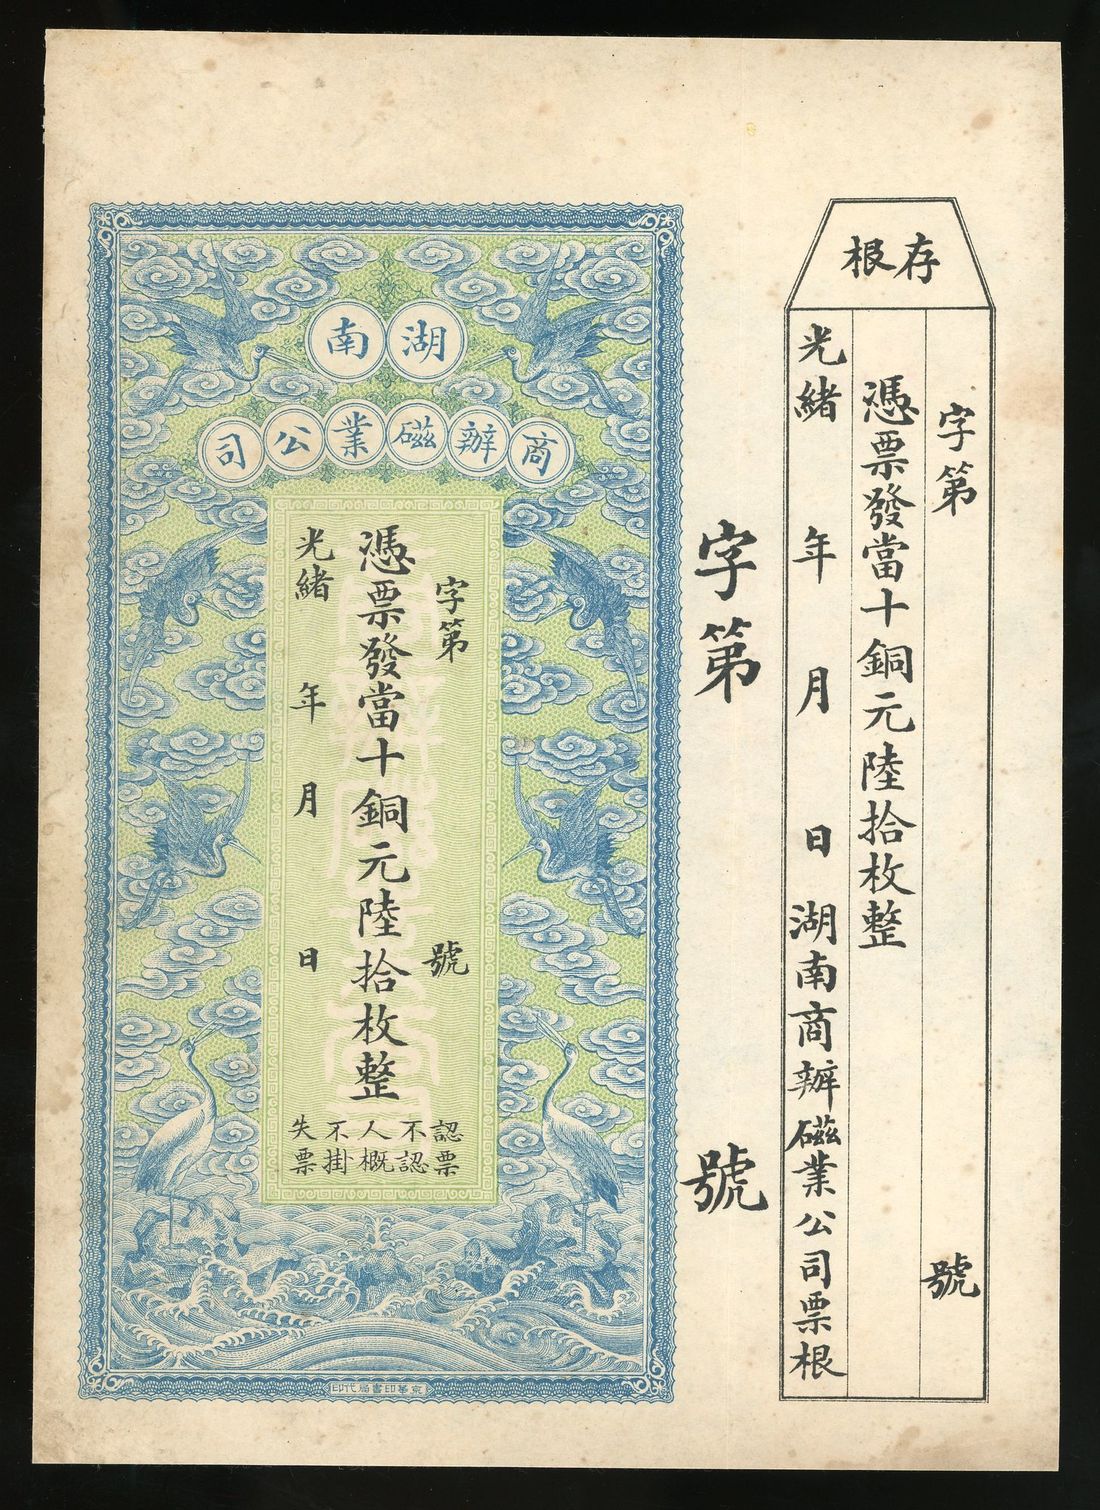 存根
字第　號
憑票發當十銅元陸拾枚整
光緒　年　月　日湖南商辦磁業公司票根
字第　號
湖南
商辦磁業公司
字第　號
憑票發當十銅元陸拾枚整
光緒　年　月　日
認票不認人概不掛失票
京華印書局代印